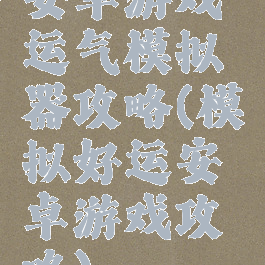 安卓游戏
运气模拟
器攻略(模
拟好运安
卓游戏攻
略)